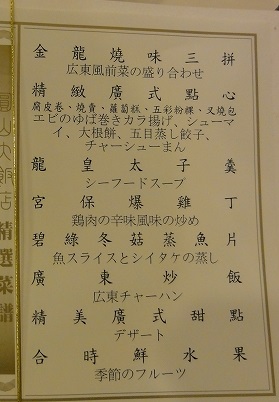 金龍燒味三拼
広東風前菜の盛り合わせ
精緻廣式點心
腐皮卷、燒賣、蘿蔔糕、五彩粉粿、叉燒包
エビのゆば巻きカラ揚げ、シューマ
イ、大根餅、五目蒸し餃子、
チャーシューまん
龍皇太子羹
シーフードスープ
宮保爆雞丁
鶏肉の辛味風味の炒め
碧綠冬菇蒸魚片
魚スライスとシイタケの蒸し
廣東炒飯
広東チャーハン
精美廣式甜點
デザート
合時鮮水果
季節のフルーツ
圓山大飯店
精選菜譜